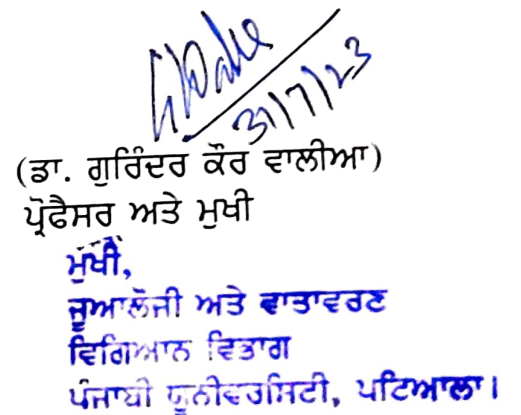 31/7/23
(ਡਾ. ਗੁਰਿੰਦਰ ਕੌਰ ਵਾਲੀਆ)
ਪ੍ਰੋਫੈਸਰ ਅਤੇ ਮੁਖੀ
ਮੁਖੀ,
ਜੂਆਲੋਜੀ ਅਤੇ ਵਾਤਾਵਰਣ
ਵਿਗਿਆਨ ਵਿਭਾਗ
ਪੰਜਾਬੀ ਯੂਨੀਵਰਸਿਟੀ, ਪਟਿਆਲਾ।